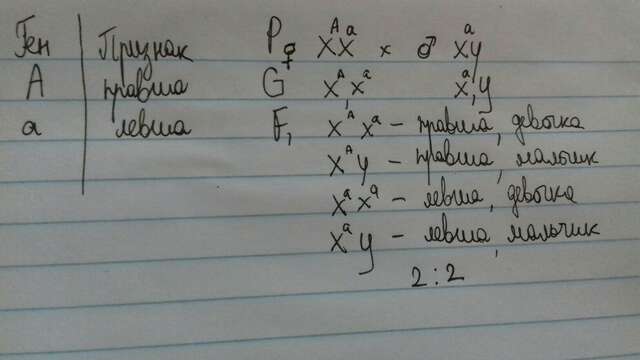 Ген Признак P ♀ XᴬXᵃ × ♂ XᵃY
A правша G Xᴬ, Xᵃ Xᵃ, Y
a левша F₁ XᴬXᵃ – правша, девочка
XᴬY – правша, мальчик
XᵃXᵃ – левша, девочка
XᵃY – левша, мальчик
2:2